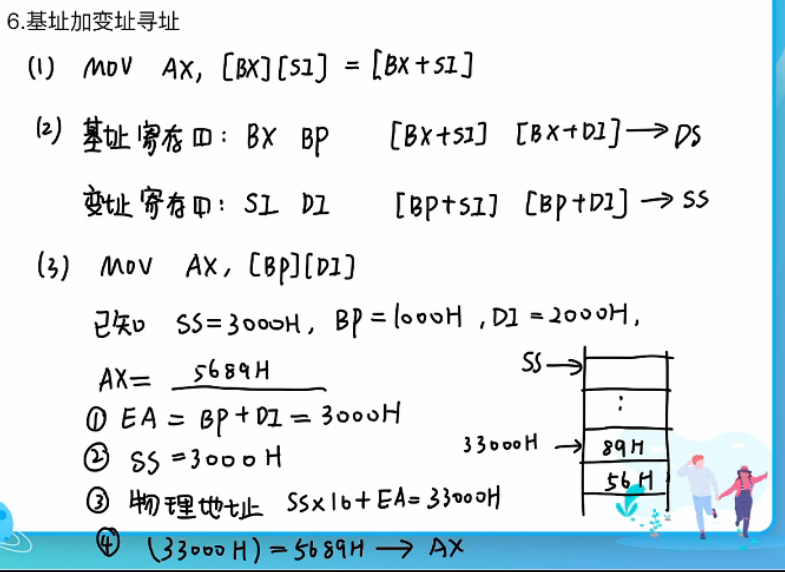 6.基址加变址寻址
(1) MOV AX, [BX][SI] = [BX+SI]
(2) 基址寄存口: BX BP [BX+SI] [BX+DI]→DS
变址寄存口: SI DI [BP+SI] [BP+DI]→SS
(3) MOV AX, [BP][DI]
已知 SS=3000H, BP=1000H, DI=2000H,
AX= 5689H
SS→
① EA = BP+DI = 3000H
⋮
② SS=3000H
33000H → 89H
56H
③ 物理地址 SS×16+EA=33000H
④ (33000H)=5689H → AX